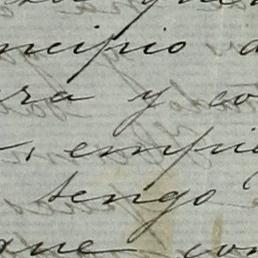 ncipio a
ra y co
, empie
tengo
que con